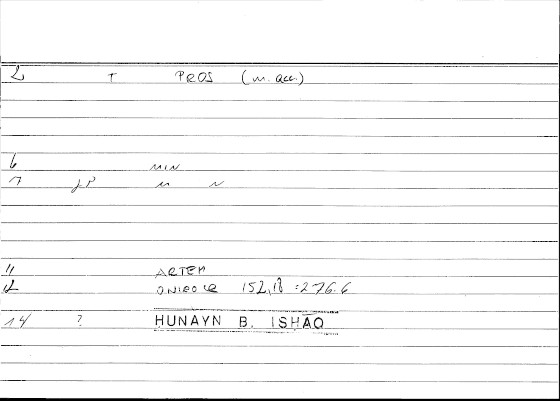 2 T PROS (m. acc.)
6 MIN
7
11 ARTEM
12 ONIROCR 152,18 = 276.6
14 ? HUNAYN B. ISḤĀQ